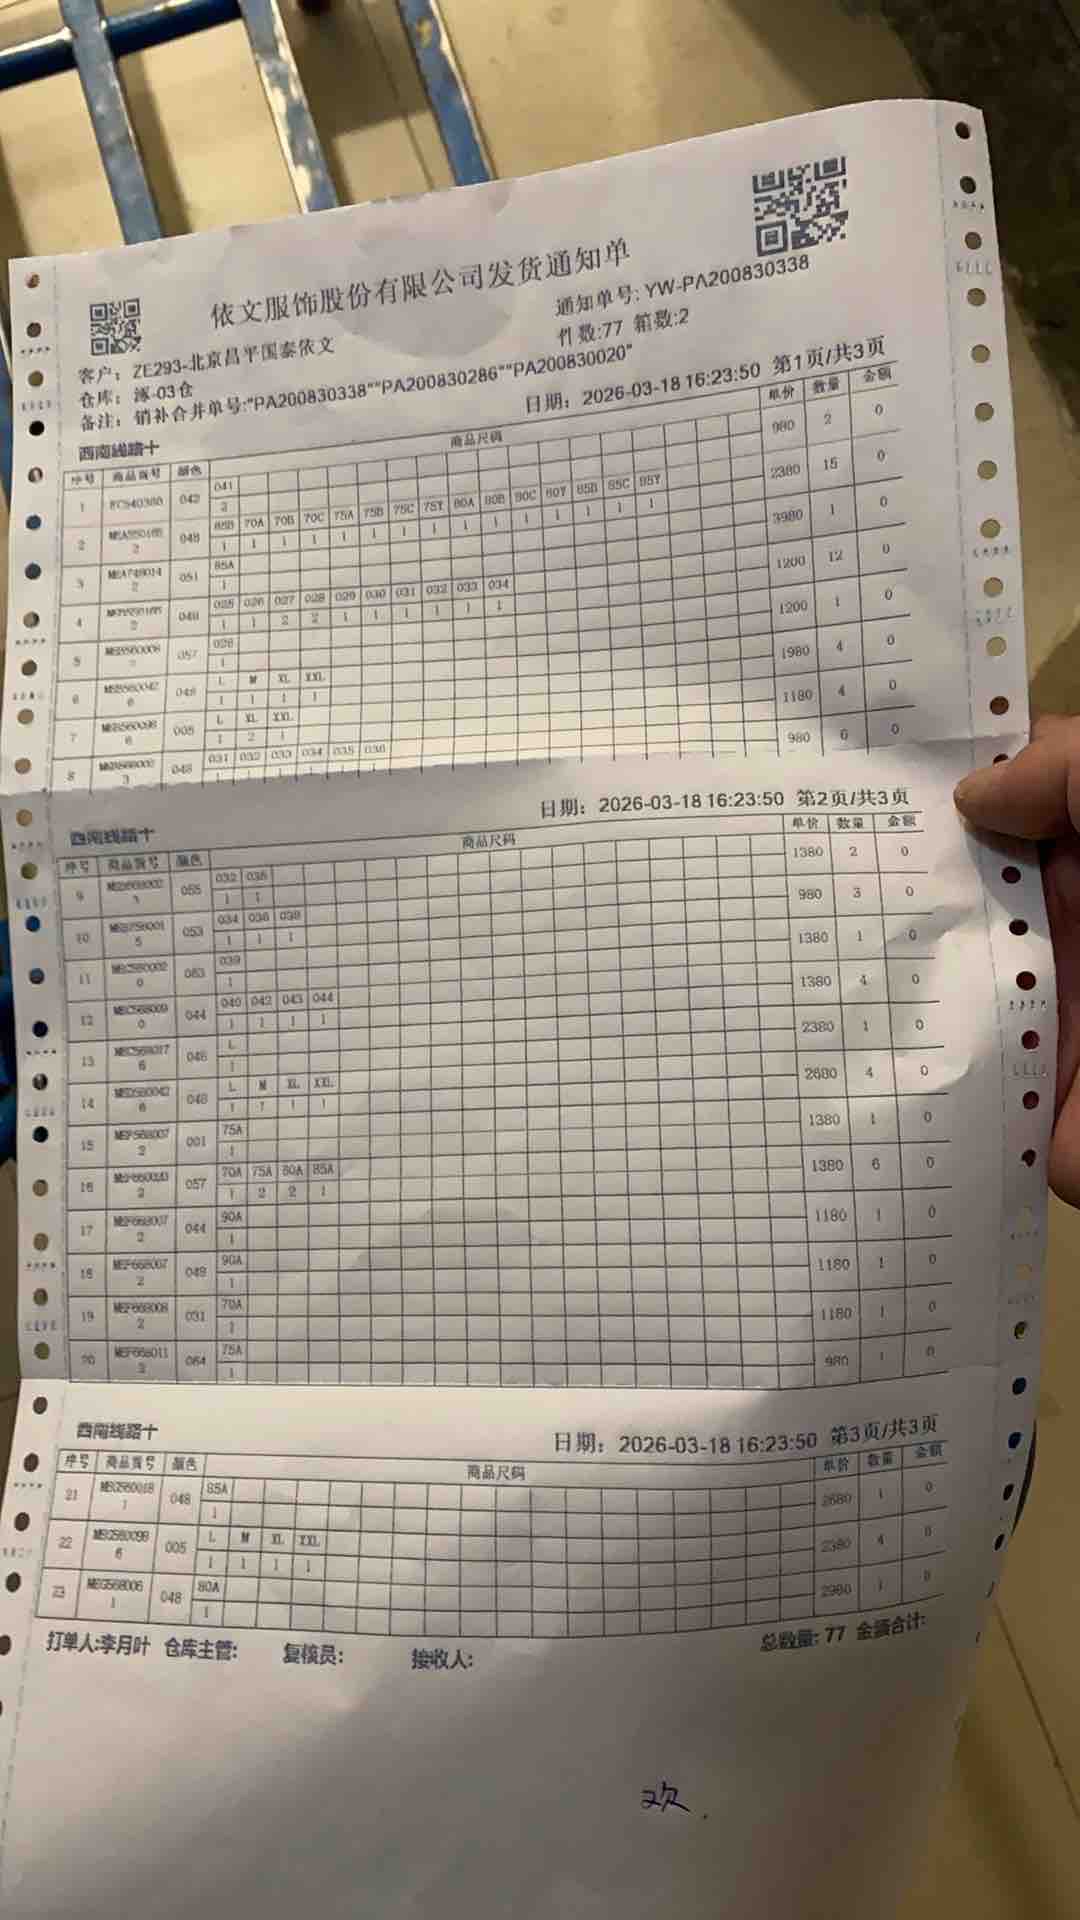 依文服饰股份有限公司发货通知单
客户: ZE293-北京昌平国泰依文
通知单号: YW-PA200830338
仓库: 涿-03仓
件数:77 箱数:2
备注: 销补合并单号:"PA200830338""PA200830286""PA200830020"
西南线路十 日期: 2026-03-18 16:23:50 第1页/共3页
序号 商品货号 颜色 商品尺码 单价 数量 金额
1 042 041 980 2 0
2
2 048 85B 70A 70B 70C 75A 75B 75C 75Y 80A 80B 80C 80Y 85B 85C 85Y 2380 15 0
1 1 1 1 1 1 1 1 1 1 1 1 1 1 1
3 051 85A 3980 1 0
1
4 048 025 026 027 028 029 030 031 032 033 034 1200 12 0
1 1 2 2 1 1 1 1 1 1
5 057 028 1200 1 0
1
6 048 L M XL XXL 1980 4 0
1 1 1 1
7 005 L XL XXL 1180 4 0
1 2 1
8 048 031 032 033 034 035 036 980 6 0
西南线路十 日期: 2026-03-18 16:23:50 第2页/共3页
序号 商品货号 颜色 商品尺码 单价 数量 金额
9 055 032 035 1380 2 0
1 1
10 053 034 036 039 980 3 0
1 1 1
11 063 039 1380 1 0
1
12 044 040 042 043 044 1380 4 0
1 1 1 1
13 046 L 2380 1 0
1
14 048 L M XL XXL 2680 4 0
1 1 1 1
15 001 75A 1380 1 0
1
16 057 70A 75A 80A 85A 1380 6 0
1 2 2 1
17 044 90A 1180 1 0
1
18 049 90A 1180 1 0
1
19 031 70A 1180 1 0
1
20 064 75A 980 1 0
1
西南线路十 日期: 2026-03-18 16:23:50 第3页/共3页
序号 商品货号 颜色 商品尺码 单价 数量 金额
21 048 85A 2680 1 0
1
22 005 L M XL XXL 2380 4 0
1 1 1 1
23 048 80A 2980 1 0
1
打单人:李月叶 仓库主管: 复核员: 接收人: 总数量: 77 金额合计:
欢